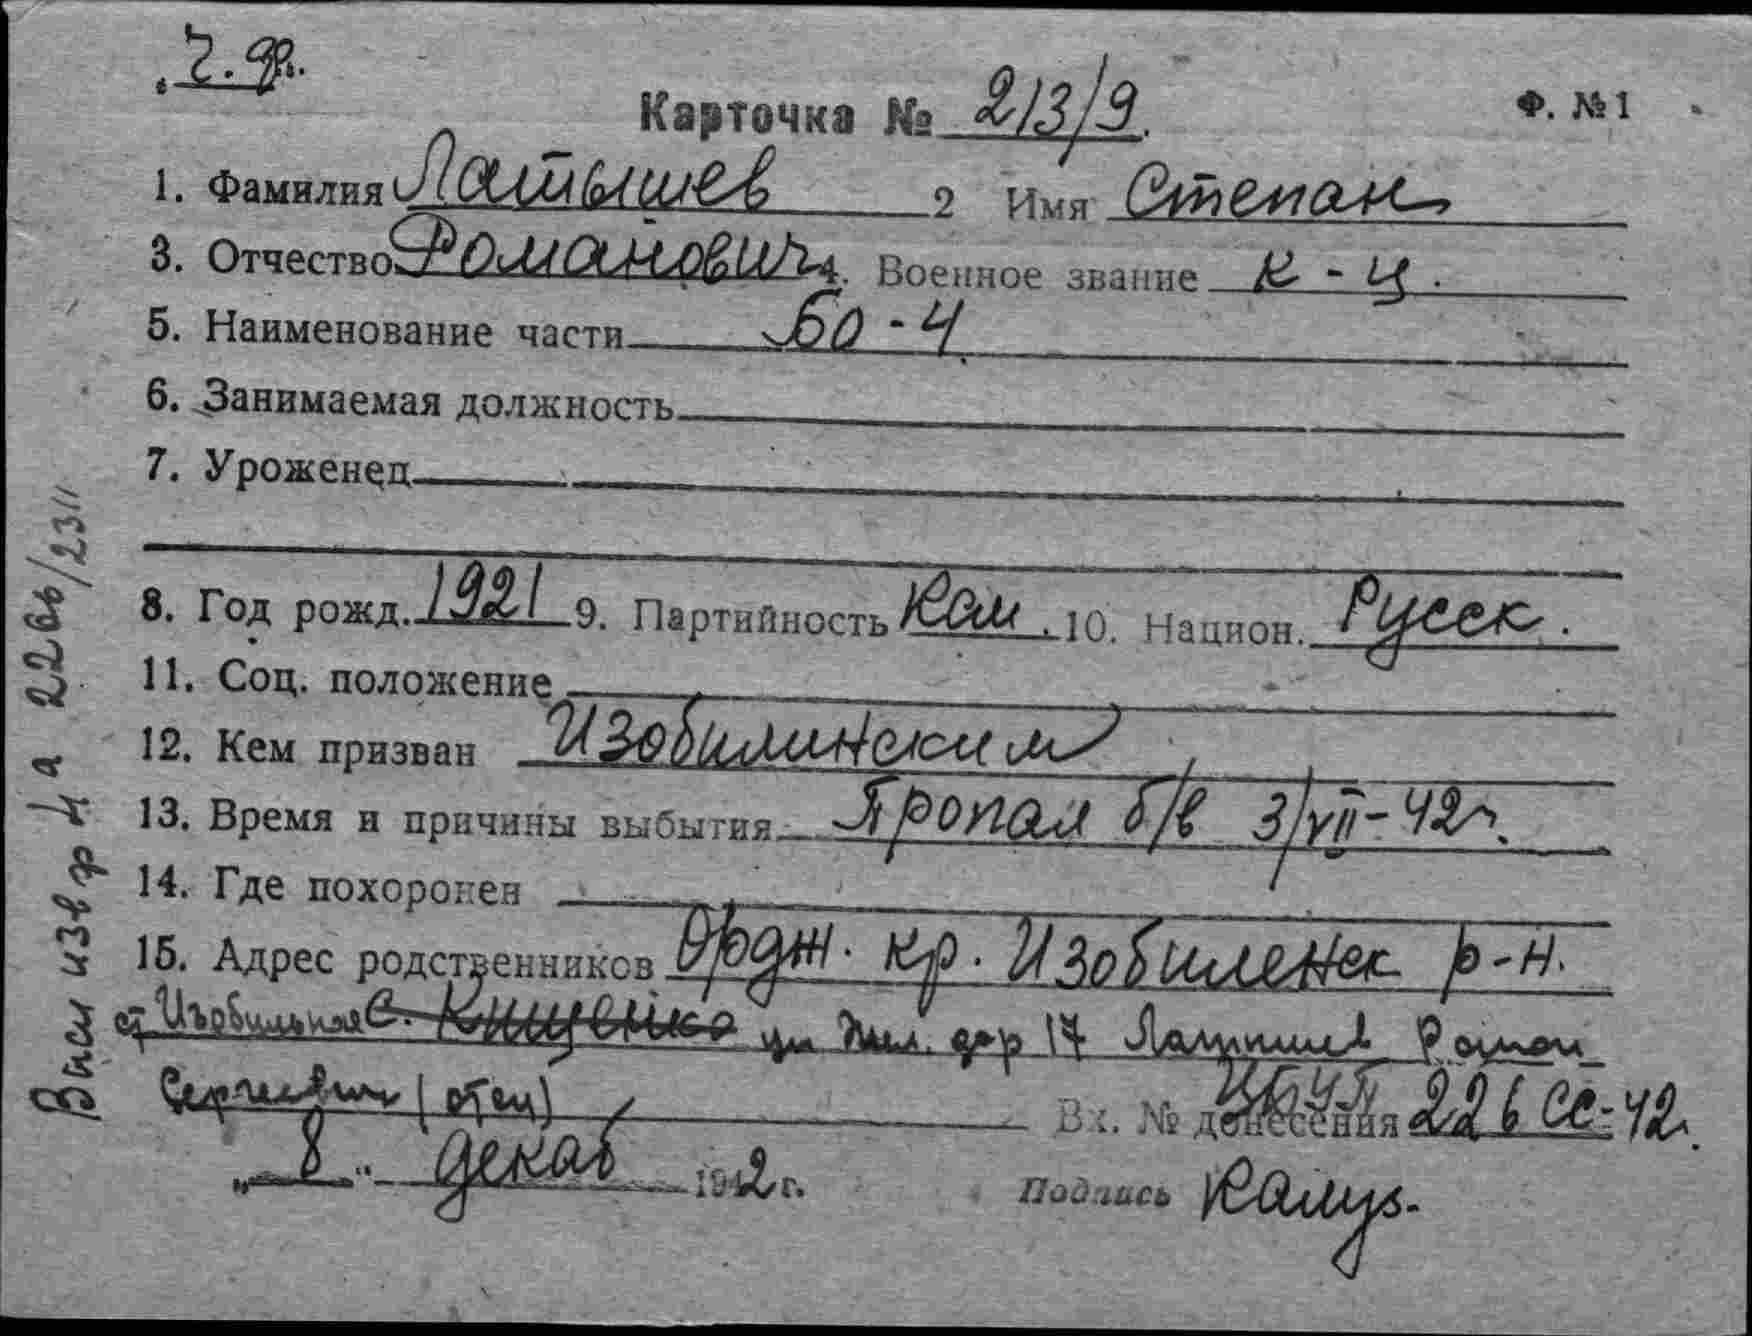 Ч. Ф.
Карточка № 213/9. Ф. №1
1. Фамилия Латышев 2 Имя Степан
3. Отчество Романович 4. Военное звание к-ц.
5. Наименование части Бо-4
6. Занимаемая должность
7. Уроженец
8. Год рожд. 1921 9. Партийность Ком. 10. Национ. Русск.
11. Соц. положение
12. Кем призван Изобилинским
13. Время и причины выбытия Пропал б/в 3/VII-42г.
14. Где похоронен
15. Адрес родственников Ордж. кр. Изобиленск р-н.
ст Изобильная с. Кищенко ул Жел. дор 17 Латышев Роман
Сергеевич (отец)
ЦБУП
Вх. № донесения 226 сс-42г.
„8" декаб 1942г. Подпись
Высл изв ф 4а 226в/23